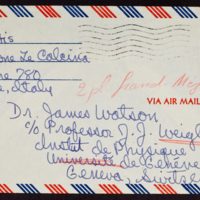 one Le Calcina
ne 780
e, Italy
VIA AIR MAIL
Dr. James Watson
c/o Professor J.J. Weigl
Institut de Physique
Université de Genève
Geneva, Switze